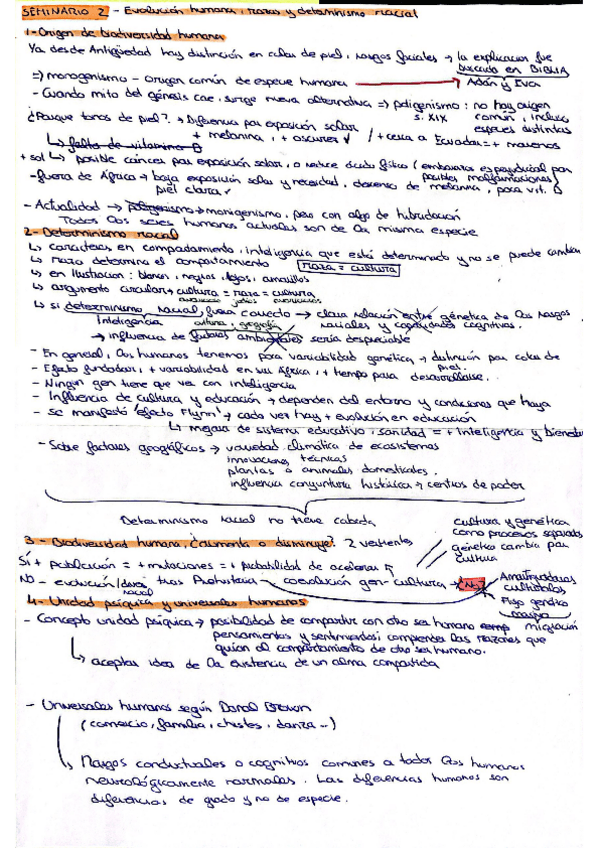 SEMINARIO 2 - Evolución humana, razas y determinismo racial
1-Origen de biodiversidad humana
Ya desde Antigüedad hay distinción en color de piel, rasgos faciales → la explicación fue buscada en BIBLIA
=> monogenismo - origen común de especie humana → Adán y Eva
- Cuando mito del génesis cae, surge nueva alternativa => poligenismo: no hay origen común, incluso especies distintas
s. XIX
¿Porque tonos de piel? → Diferencia por exposición solar / + cerca a Ecuador = + morenos
+ melanina, + oscurer
↳ falta de vitamina D
+ sol ↳ posible cáncer por exposición solar, o reduce ácido fólico (embarazos es perjudicial por posibles malformaciones)
- fuera de África → baja exposición solar y necesidad, descenso de melanina, poca vit. D
piel clara
- Actualidad → poligenismo → monogenismo, pero con algo de hibridación
Todos los seres humanos actuales son de la misma especie
2- Determinismo racial
↳ caracteres en comportamiento, inteligencia que está determinado y no se puede cambiar
↳ raza determina el comportamiento raza = cultura
↳ en Ilustración: blancos, negros, rojos, amarillos
↳ argumento circular → cultura = raza = cultura
↳ si determinismo racial fuera correcto → clara relación entre genética de los rasgos raciales y capacidades cognitivas.
Inteligencia cultura, geografía
→ influencia de factores ambientales sería despreciable
- En general, los humanos tenemos poca variabilidad genética → distinción por color de piel.
- Efecto fundador, + variabilidad en sur África, + tiempo para desarrollarse.
- Ningún gen tiene que ver con inteligencia
- Influencia de cultura y educación → dependen del entorno y condiciones que haya
- se manifestó 'efecto Flynn' → cada vez hay + evolución en educación
↳ mejora de sistema educativo, sanidad = + inteligencia y bienestar
- Sobre factores geográficos → variedad climática de ecosistemas
innovaciones técnicas
plantas o animales domesticables.
influencia conjuntura histórica → centros de poder
Determinismo racial no tiene cabida
3- Biodiversidad humana, ¿aumenta o disminuye? 2 vertientes
cultura y genética como procesos separados
genética cambia por cultura
Sí + población = + mutaciones = + probabilidad de acelerar
NO - evolución racial tras Prehistoria - coevolución gen-cultura → No
Amortiguadoras culturales
Flujo genético masivo
migración
4- Unidad psíquica y universales humanos
- Concepto unidad psíquica → posibilidad de compartir con otro ser humano
pensamientos y sentimientos; comprender las razones que
guían el comportamiento de otro ser humano.
↳ aceptar idea de la existencia de un alma compartida
- Universales humanos según Donal Brown
(comercio, familia, chistes, danza...)
↳ Rasgos conductuales o cognitivos comunes a todos los humanos
neurológicamente normales. Las diferencias humanas son
diferencias de grado y no de especie.